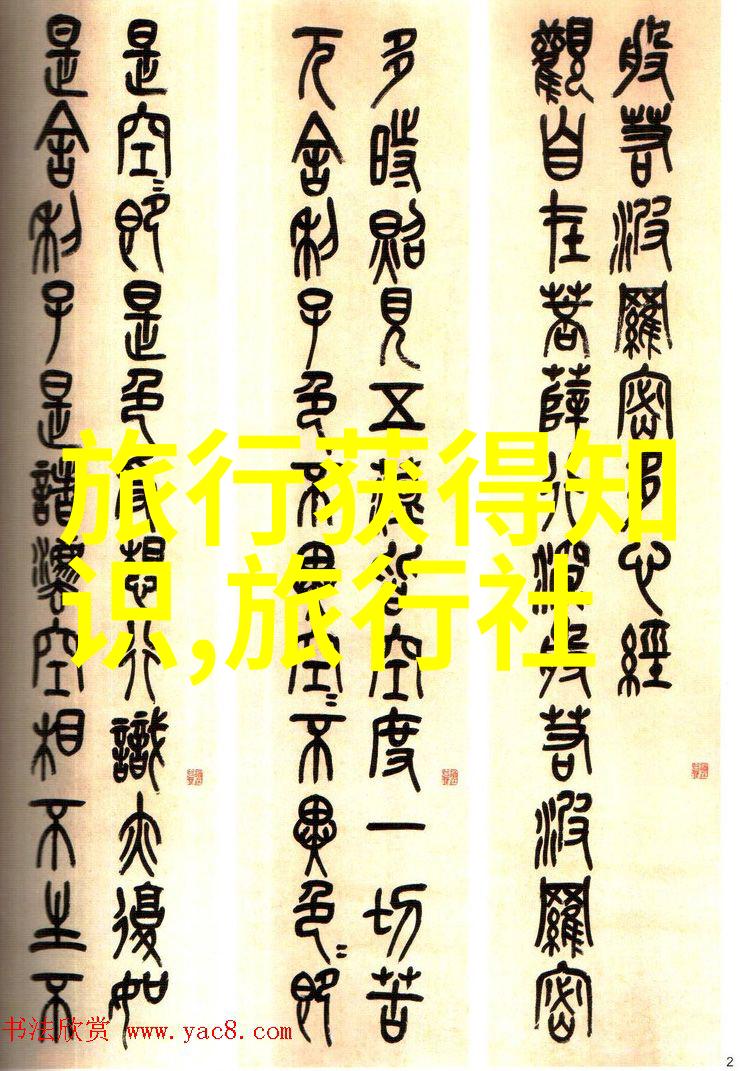 般若波羅密多心經
觀自在菩薩行深般若波羅密
多時照見五蘊皆空度一切苦
厄舍利子色〻不異空〻不異色〻即
是空〻即是色受想行識亦復如
是舍利子是諸法空相不生不
旅行获得知
识,旅行社
书法欣赏 www.yac8.com
2